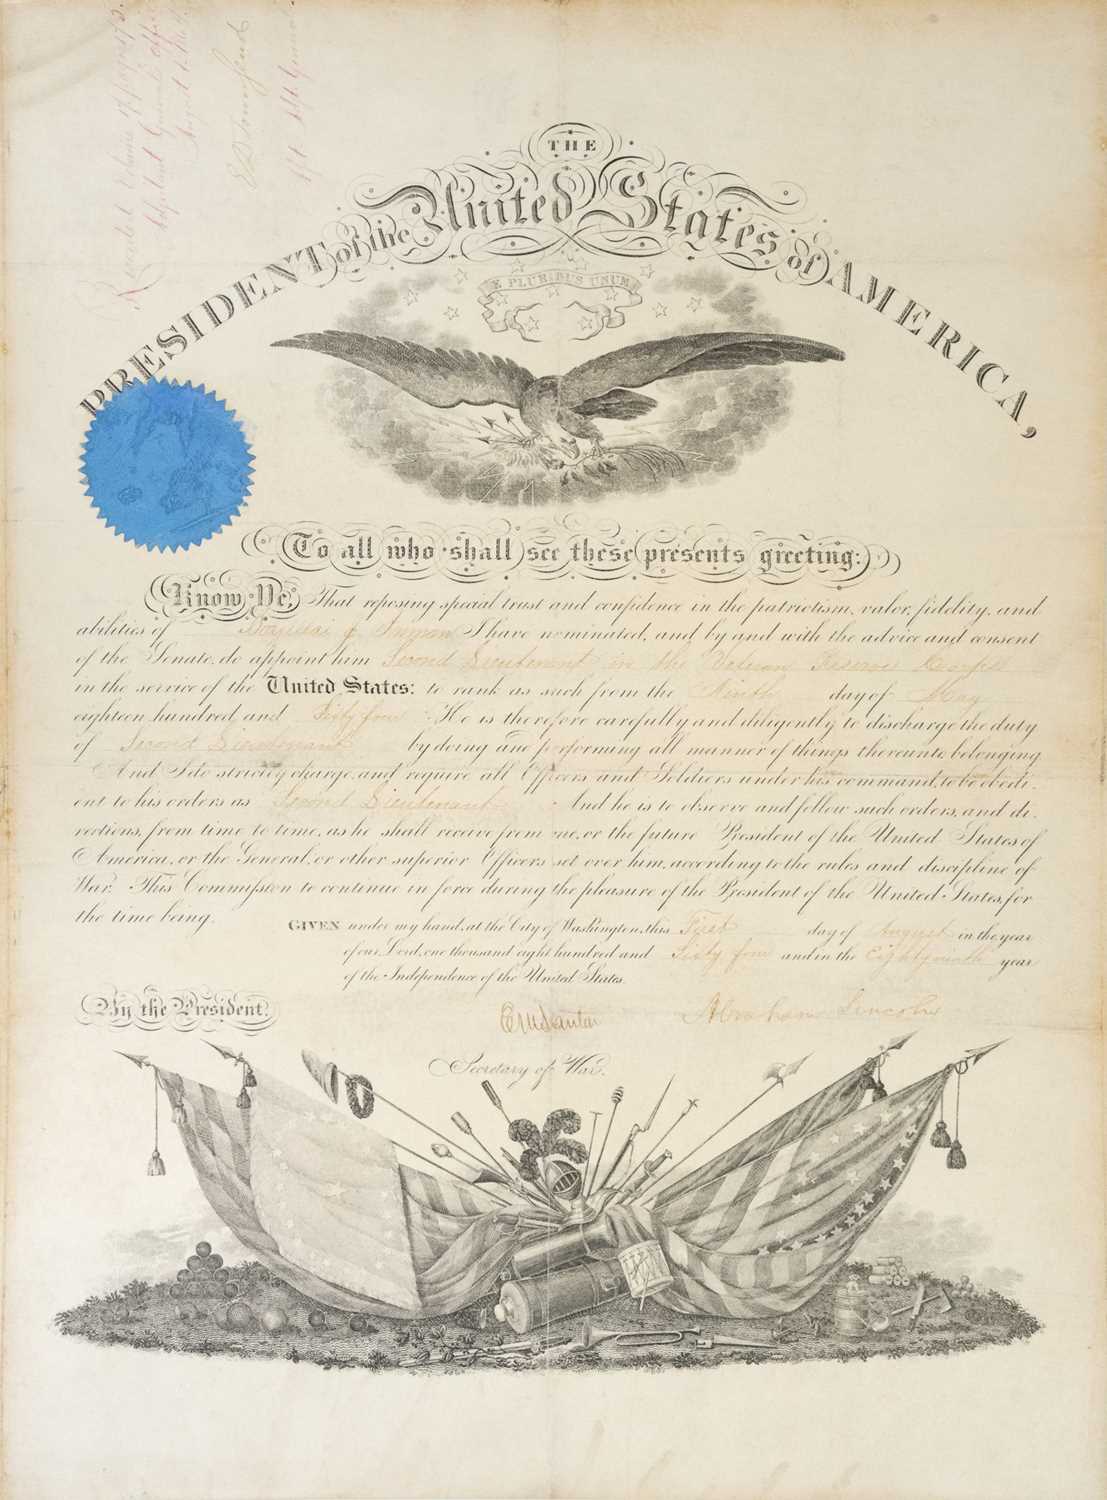 THE
PRESIDENT of the United States of AMERICA,
E PLURIBUS UNUM
To all who shall see these presents greeting:
Know Ye, That reposing special trust and confidence in the patriotism, valor, fidelity, and
abilities of I have nominated, and by and with the advice and consent
of the Senate, do appoint him Second Lieutenant in the Veteran Reserve Corps
in the service of the United States: to rank as such from the Ninth day of May
eighteen hundred and Sixty four. He is therefore carefully and diligently to discharge the duty
of Second Lieutenant by doing and performing all manner of things thereunto belonging
And I do strictly charge, and require all Officers and Soldiers under his command, to be obedi-
ent to his orders as Second Lieutenant And he is to observe and follow such orders, and di-
rections, from time to time, as he shall receive from me, or the future President of the United States of
America, or the General, or other superior Officers set over him, according to the rules and discipline of
War. This Commission to continue in force during the pleasure of the President of the United States, for
the time being.
GIVEN under my hand, at the City of Washington, this First day of August in the year
of our Lord, one thousand eight hundred and Sixty four and in the Eighty ninth year
of the Independence of the United States.
By the President.
Edwin M Stanton Abraham Lincoln
Secretary of War.
Adjutant General's Office
E D Townsend
Asst Adjt General